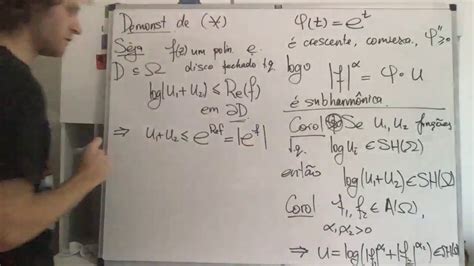 Demonst de (*)
Seja f(z) um polin. e
D ⊆ Ω disco fechado t.q.
log(u₁+u₂) ≤ Re(f)
em ∂D.
⇒ u₁+u₂ ≤ e^{Re f} = |e^f|
φ(t) = e^t
é crescente, convexa, φ''≥0
logo |f|^α = φ∘u
é subharmônica.
Corol (*) Se u₁, u₂ funções
t.q. log uᵢ ∈ SH(Ω)
então log(u₁+u₂) ∈ SH(Ω)
Corol f₁, f₂ ∈ A(Ω),
α₁, α₂ > 0
⇒ u = log(|f₁|^{α₁}+|f₂|^{α₂}) ∈ SH(Ω)